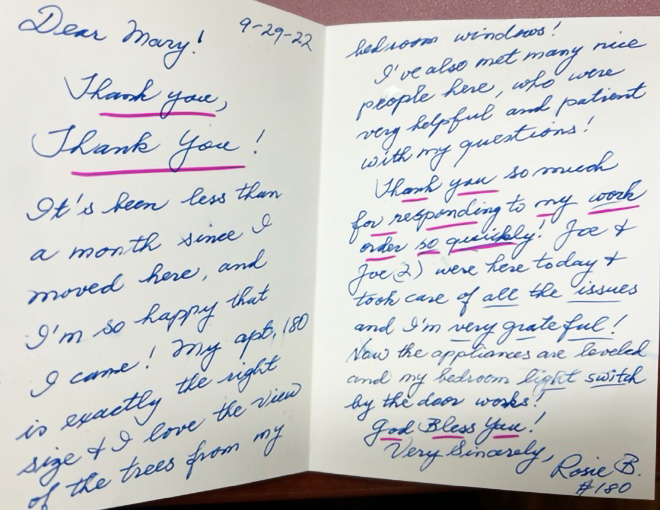 9-29-22
Dear Mary!
Thank you,
Thank You!
It's been less than
a month since I
moved here, and
I'm so happy that
I came! My apt. 180
is exactly the right
size & I love the view
of the trees from my
bedroom windows!
I've also met many nice
people here, who were
very helpful and patient
with my questions!
Thank you so much
for responding to my work
order so quickly! Joe &
Joe (2) were here today &
took care of all the issues
and I'm very grateful!
Now the appliances are leveled
and my bedroom light switch
by the door works!
God Bless You!
Very Sincerely,
Rosie B.
#180